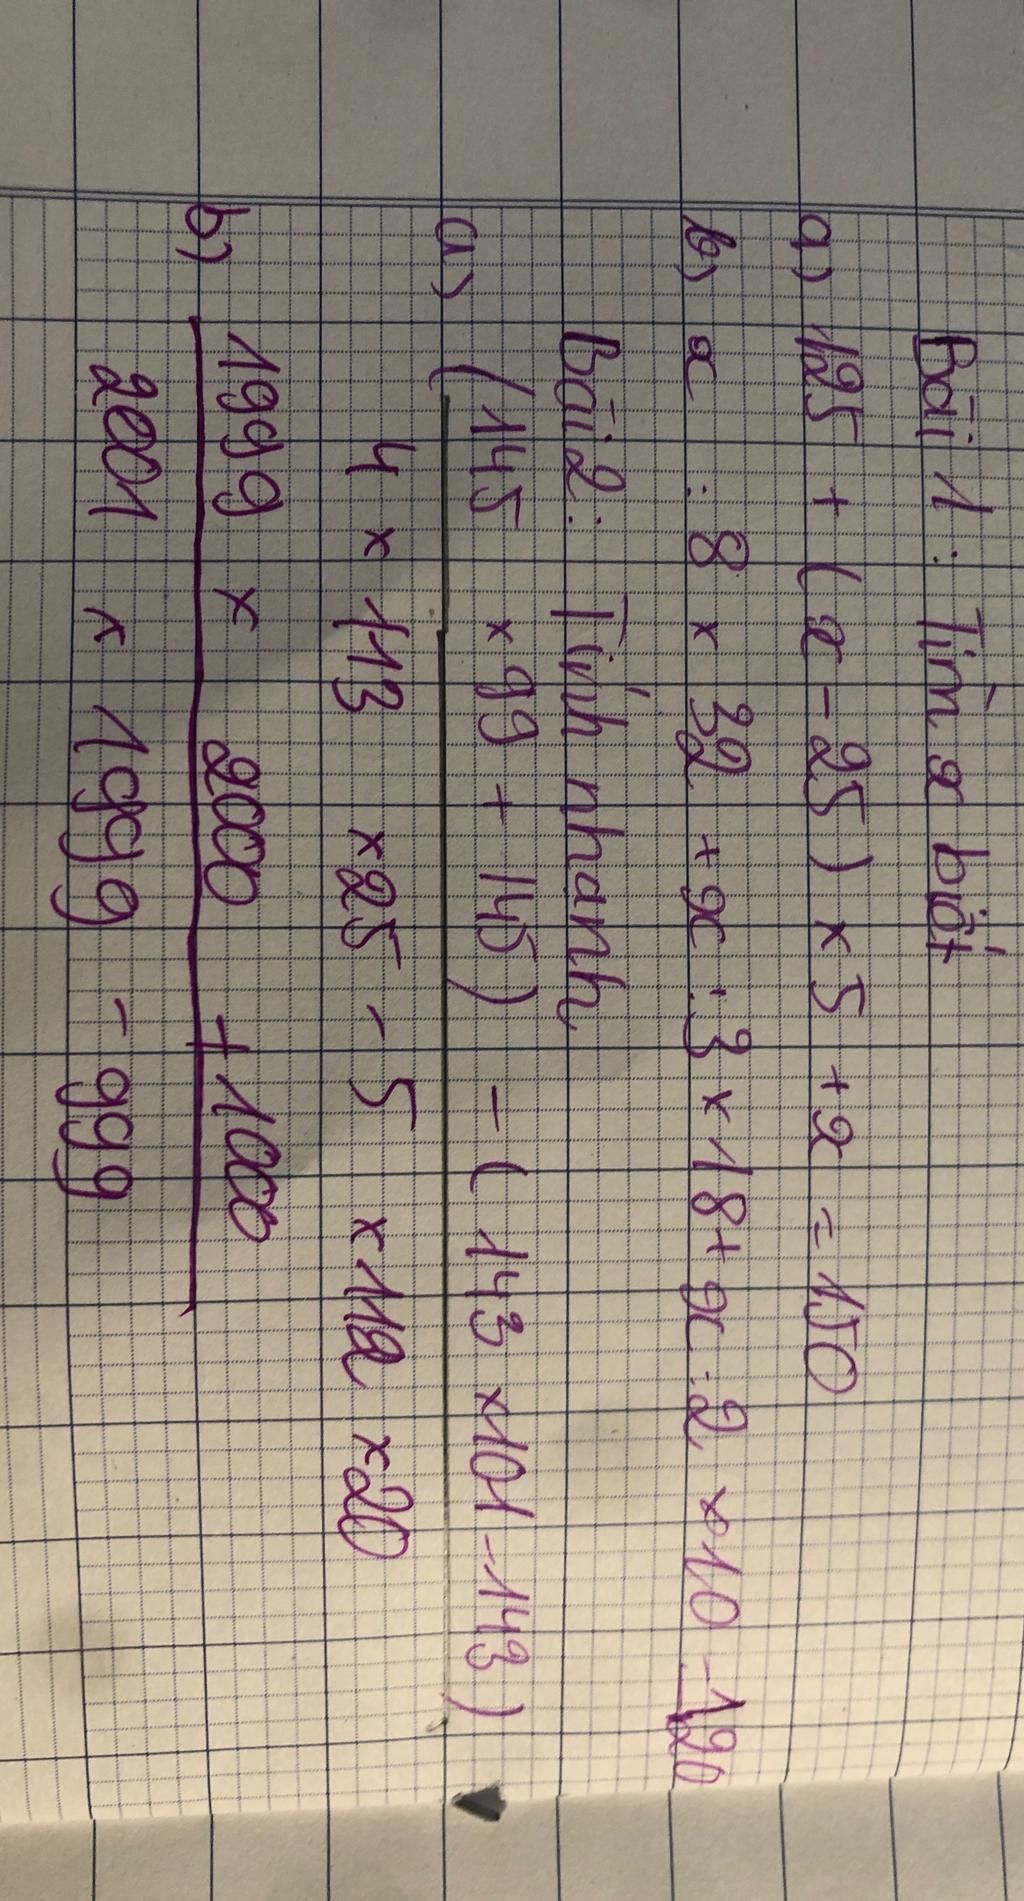 Bài 1: Tìm x biết
a) 125 + (x - 25) x 5 + 2 = 150
b) x : 8 x 32 + x : 3 x 18 + x : 2 x 10 - 120
Bài 2: Tính nhanh
a) (145 x 99 + 145) - (143 x 101 - 143)
4 x 113 x 25 - 5 x 112 x 20
b) 1999 x 2000 + 1000
2001 x 1999 - 999